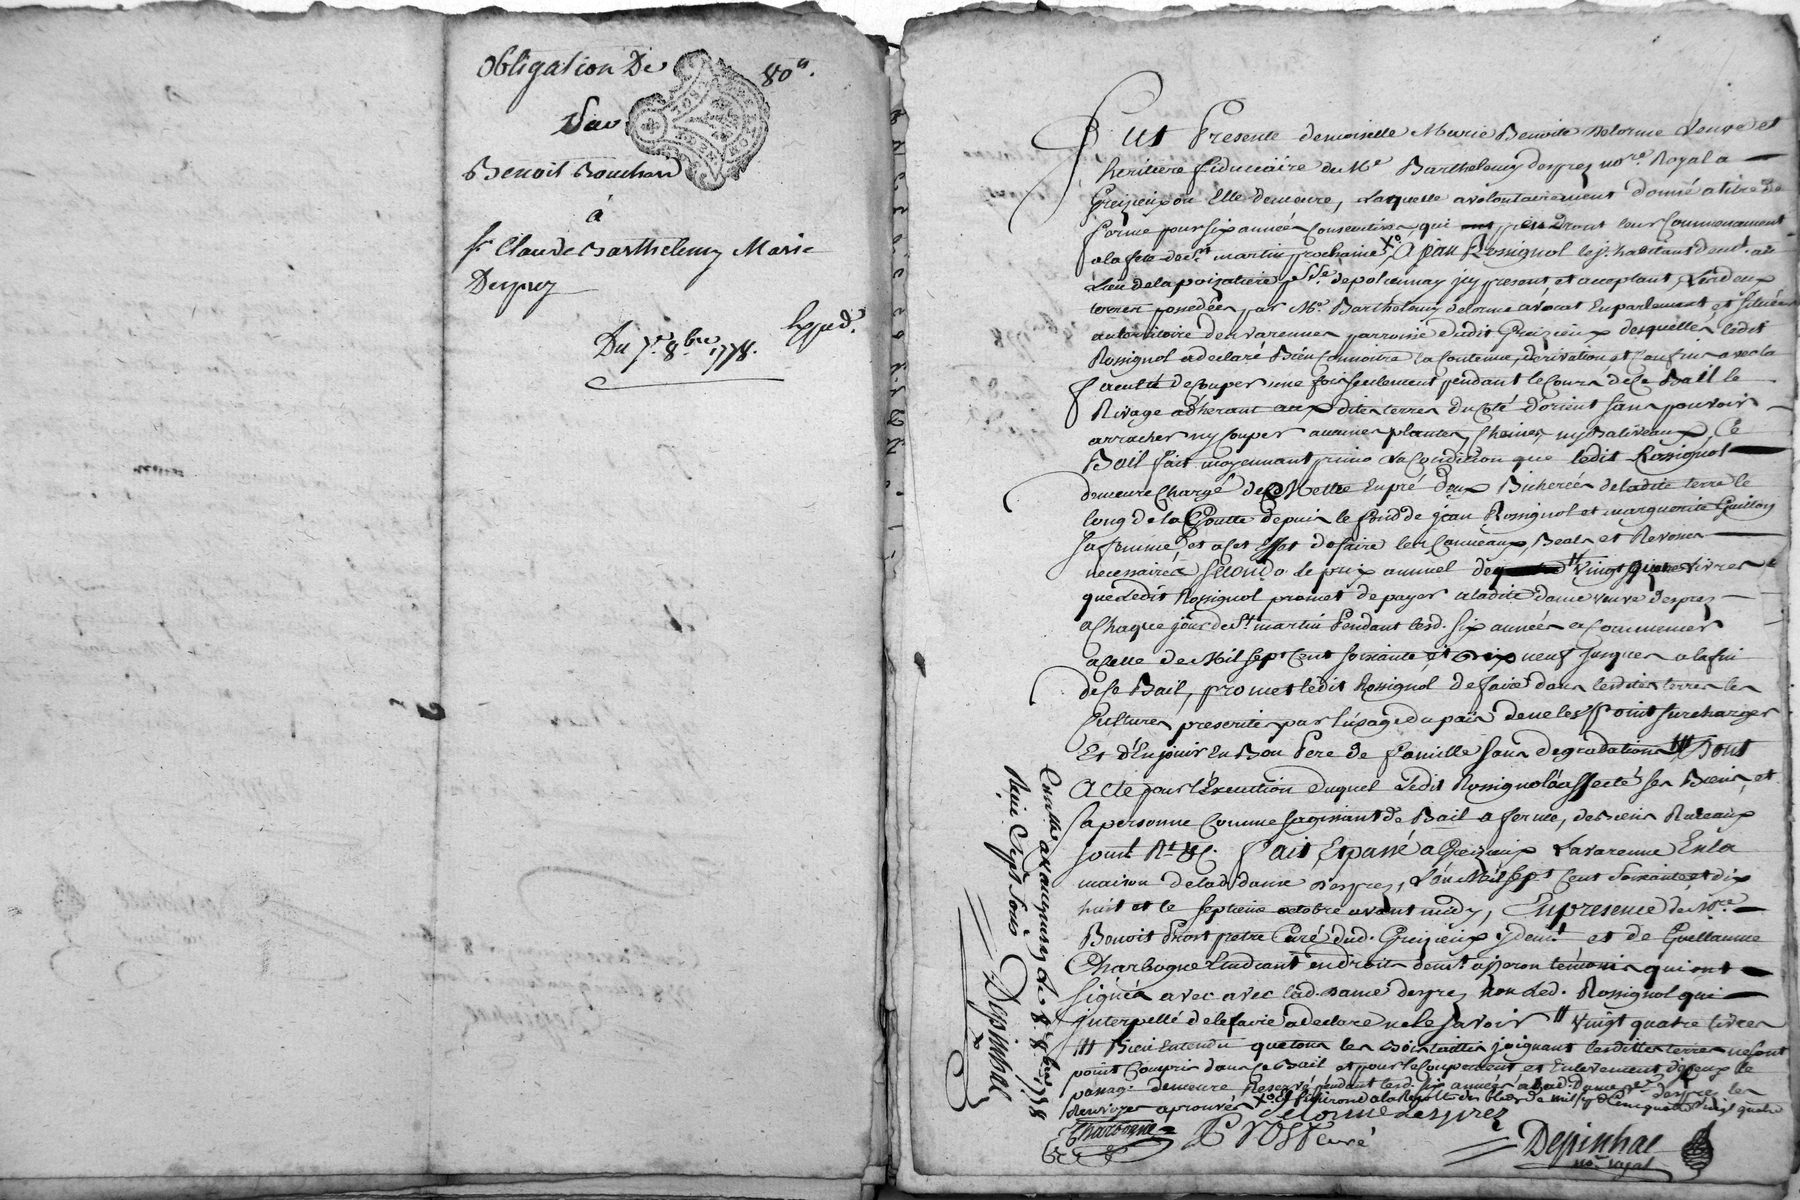 Obligation De 80ᵗᵗ.
Par
Benoit Bouchard
à
sr. Claude Barthelemy Marie
Desprez
Du 7e. 8bre 1778.
Expéd.
Fut Presente demoiselle Marie Benoite Delorme Veuve et
heritiere fiduciaire de Me Barthelemy Desprez nore. Royal a
Greizieu ou Elle demeure, Laquelle a volontairement donné a titre de
ferme pour six années consecutives qui prendront leur Commencement
a la fete de St. martin prochaine Xo A jean Rossignol le j. habitant demt. au
Lieu de la poizatiere psse. de polienay icy present et acceptant, Les deux
terres possedées par Me. Barthelemy delorme avocat En parlement et situées
au territoire des varennes parroisse dudit Greizieux desquelles ledit
Rossignol a declaré Bien connoitre la Contenue, derivation et Confins avec la
faculté de Couper une fois seulement pendant le Cours de Ce Bail le
Rivage adherant aux dites terres du Coté d'orient sans pouvoir
arracher ny Couper aucunes plantes, Chenes, ny Baliveaux, Ce
Bail fait moyennant primo La Condition que ledit Rossignol
demeure Chargé de Mettre En pré deux Bicherées de ladite terre le
long de la Goutte depuis le fond de jean Rossignol et marguerite Guillon
sa femme, et a Cet Effet de faire les Canneaux, Beals et
necessaires secondo le prix annuel de Vingt quatre Livres
que Ledit Rossignol promet de payer a ladite dame veuve desprez
a Chaque jour de St. martin Pendant lesd. six années a Commencer
a Celle de Mil sept Cent soixante et dix neuf jusques a la fin
de Ce Bail, promet ledit Rossignol de faire dans lesdites terres les
Cultures prescrites par l'usage du païs de ne les Point surcharger
Et d'En jouir En Bon Pere de famille sans degradations /// Dont
Acte pour l'Execution duquel Ledit Rossignol a affecté ses Biens, et
Sa personne Comme s'agissant de Bail a ferme, de Biens Ruraux
soumt. Rt. &c. Fait Et passé a Greizieux Lavarenne En la
maison de lad. dame Desprez, L'an Mil sept Cent soixante et dix
huit et le septieme octobre avant midy, En presence de
Benoit Prost pretre Curé dud. Greizieux y demt. et de Guillaume
Charbogne Etudiant en droit demt. temoins qui ont
signés avec avec lad. Dame desprez non Led. Rossignol qui
interpellé de le faire a declaré ne le savoir // vingt quatre livres
/// Bien Entendu que tous les Bois taillis joignant lesdittes terres ne sont
point Compris dans Ce Bail et pour le Coupement et Enlevement d'iceux le
passage demeure Reservé pendant lesd. six années a lad. Dame desprez les
Renvoyes aprouvés Xo Et finiront a la Recolte des bleds de mil sept Cent quatre vingt quatre
Delorme desprez
Charbogne
Prost Curé
Despinhac
no. royal
Conllé. a St. le 8. 8bre. 1778
Reçu Sept sous
Despinhac